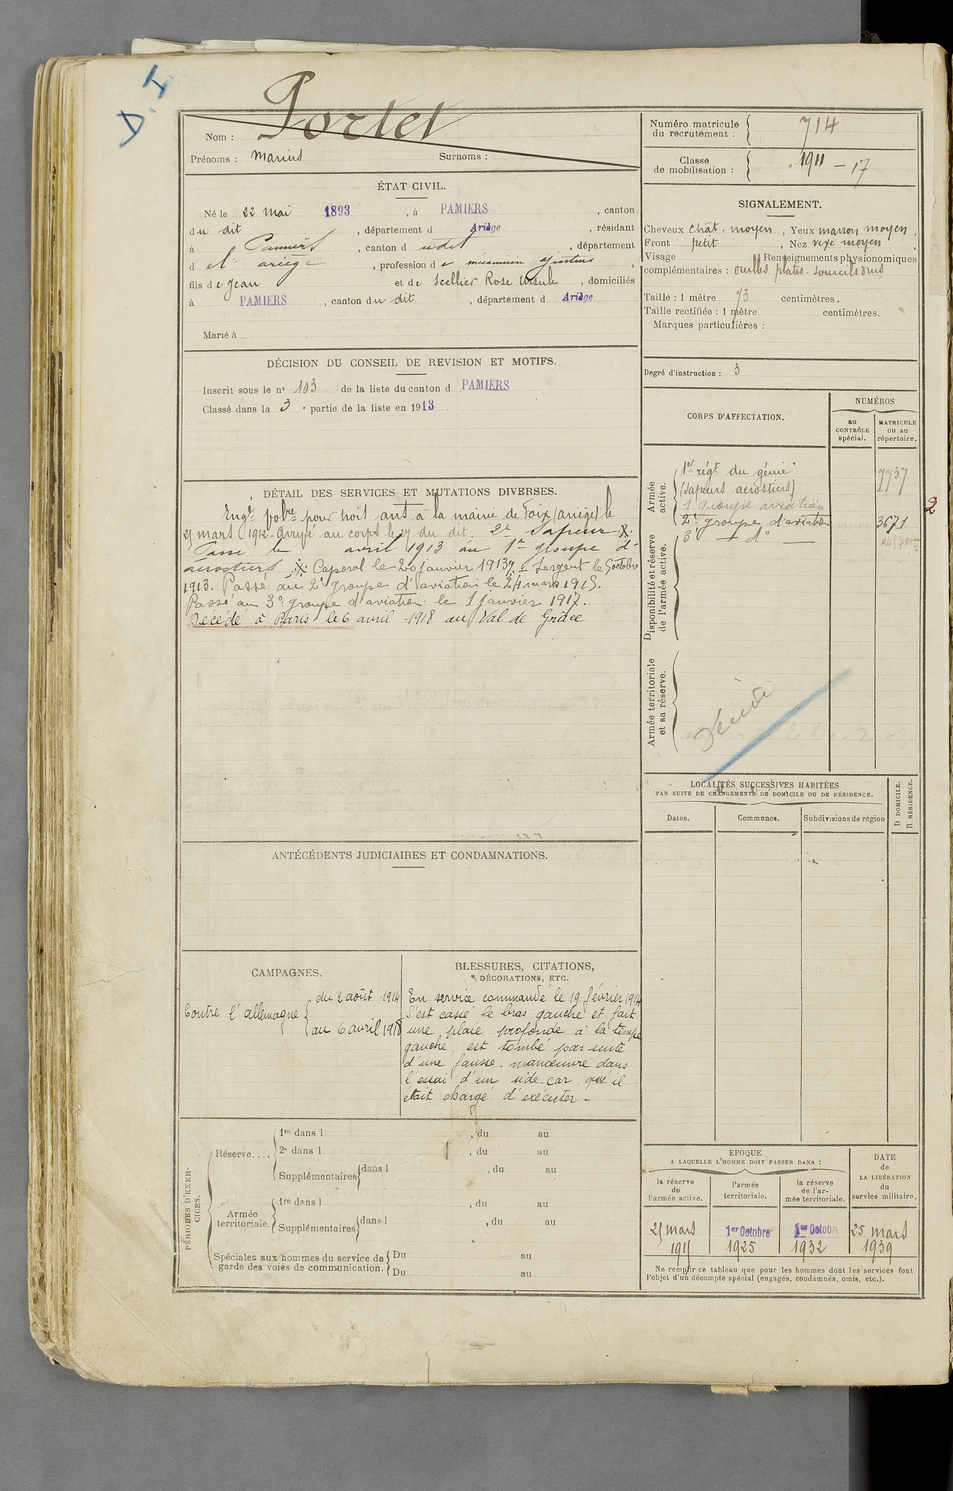 D. I
Nom : Portet
Prénoms : Marius Surnoms :
ÉTAT CIVIL.
Né le 22 mai 1893, à PAMIERS, canton
du dit, département d Ariège, résidant
à Pamiers, canton d udit, département
d e l'ariège, profession de mécanicien ajusteur,
fils de Jean et de Scellier Rose Ursule, domiciliés
à PAMIERS, canton du dit, département d Ariège
Marié à
DÉCISION DU CONSEIL DE REVISION ET MOTIFS.
Inscrit sous le n° 103 de la liste du canton d PAMIERS
Classé dans la 3e partie de la liste en 1913.
DÉTAIL DES SERVICES ET MUTATIONS DIVERSES.
Engé volre pour trois ans à la mairie de Foix (ariège) le
mars 1912. Arrivé au corps le 27 du dit. 2e Sapeur
Passé le avril 1913 au 1er groupe d'
aérostiers. Caporal le 20 janvier 1913. Sergent le 5 octobre
1913. Passé au 2e groupe d'aviation le 24 mars 1915.
Passé au 3e groupe d'aviation le 1 janvier 1917.
Décédé à Paris le 6 avril 1918 au Val de Grâce
ANTÉCÉDENTS JUDICIAIRES ET CONDAMNATIONS.
CAMPAGNES.
Contre l'allemagne
du 2 août 1914
au 6 avril 1918
BLESSURES, CITATIONS,
DÉCORATIONS, ETC.
En service commandé le 19 février 1914
s'est cassé le bras gauche et fait
une plaie profonde à la tempe
gauche, est tombé par suite
d'une fausse manœuvre dans
l'essai d'un side-car, qu'il
était chargé d'exécuter -
PÉRIODES D'EXERCICES.
Réserve....
1re dans l , du au
2e dans l , du au
Supplémentaires dans l , du au
Armée territoriale.
1re dans l , du au
Supplémentaires dans l , du au
Spéciales aux hommes du service de
garde des voies de communication.
Du au
Du au
Numéro matricule
du recrutement : 714
Classe
de mobilisation : 1911 - 17
SIGNALEMENT.
Cheveux chât. moyen, Yeux marron moyen,
Front petit, Nez moyen
Visage Renseignements physionomiques
complémentaires : oreilles plates. sourcils drus
Taille : 1 mètre 73 centimètres.
Taille rectifiée : 1 mètre centimètres.
Marques particulières :
Degré d'instruction : 3
CORPS D'AFFECTATION.
NUMÉROS
au
CONTRÔLE
spécial.
MATRICULE
ou au
répertoire.
Armée
active.
1er régt du génie 7737
(sapeurs aérostiers)
1 groupe aviation
2e groupe d'aviation 3671
3e - d° -
2
Disponibilité et réserve
de l'armée active.
Armée territoriale
et sa réserve.
Décédé
LOCALITÉS SUCCESSIVES HABITÉES
PAR SUITE DE CHANGEMENTS DE DOMICILE OU DE RÉSIDENCE.
Dates. Communes. Subdivisions de région
D DOMICILE.
R RÉSIDENCE.
EPOQUE
A LAQUELLE L'HOMME DOIT PASSER DANS :
la réserve
de
l'armée active.
l'armée
territoriale.
la réserve
de l'ar-
mée territoriale.
DATE
de
LA LIBÉRATION
du
service militaire.
25 mars 1er Octobre 1er Octobre 25 mars
1915 1925 1932 1939
Ne remplir ce tableau que pour les hommes dont les services font
l'objet d'un décompte spécial (engagés, condamnés, omis, etc.).